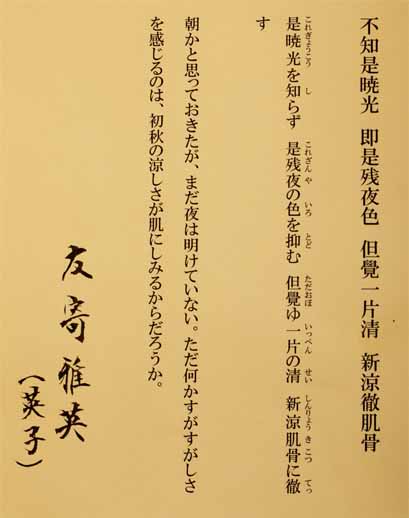 不知是暁光　即是残夜色　但覺一片清　新涼徹肌骨
是暁光を知らず　是残夜の色を抑む　但覺ゆ一片の清　新涼肌骨に徹
す
朝かと思っておきたが、まだ夜は明けていない。ただ何かすがすがしさ
を感じるのは、初秋の涼しさが肌にしみるからだろうか。
友寄雅英
（英子）